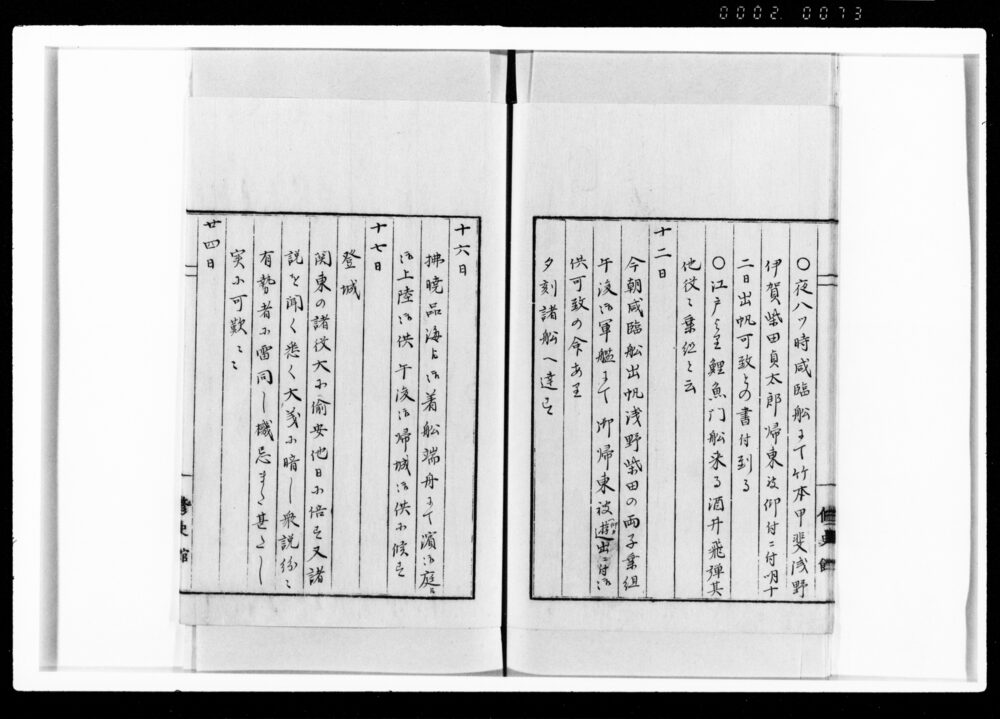 0002 0073
〇夜八ツ時咸臨船ニて竹本甲斐浅野
伊賀柴田貞太郎帰東被仰付ニ付明十
二日出帆可致との書付到る
〇江戸より鯉魚门船来る酒井飛弾其
他役々乗組と云
十二日
今朝咸臨船出帆浅野柴田の両子乗組
午後御軍艦ニて御帰東被遊出ニ付御
供可致の令あり
夕刻諸船へ達す
修史館
十六日
拂曉品海に御着船端舟ニて濱御庭
御上陸御供午後御帰城御供に候す
十七日
登城
関東の諸役大に偷安他日に倍す又諸
説を聞く悉く大義に暗し衆説紛々
有勢者に雷同し機忌また甚たし
実に可歎々々
廿四日
修史館